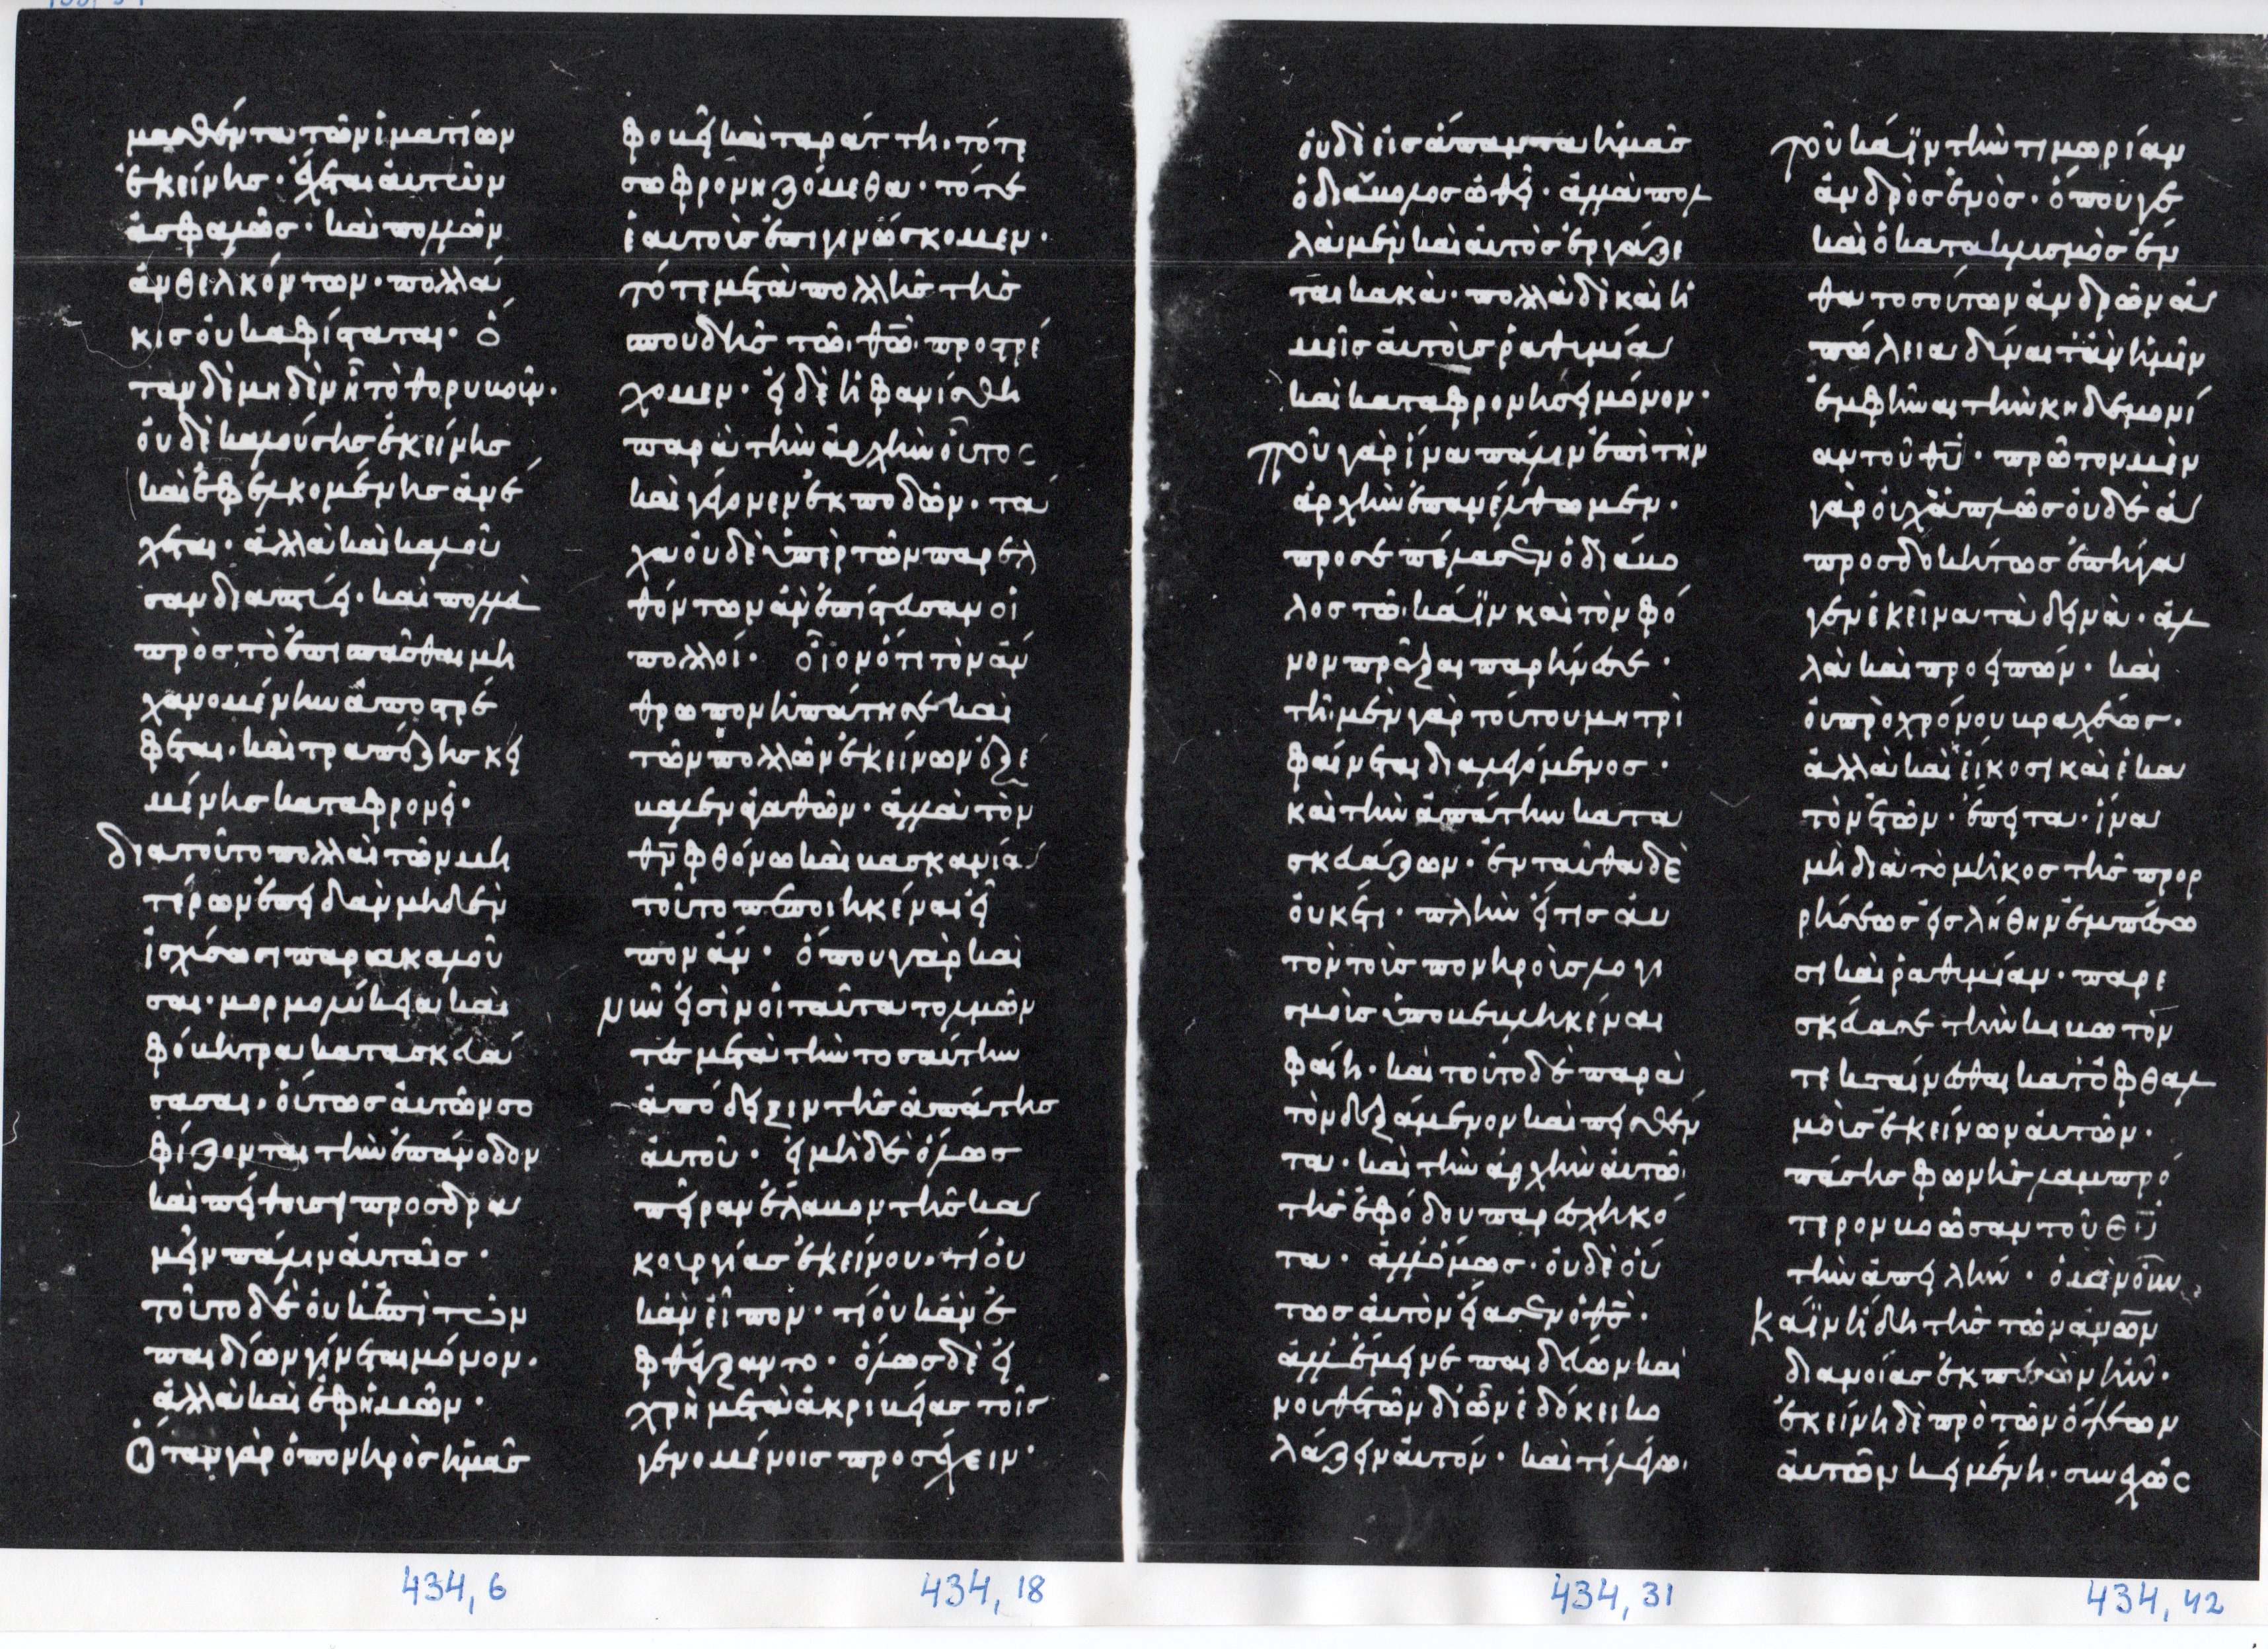 μασθέντα τῶν ἱματίων
ἐκείνης· ἔχεται αὐτῶν
ἀσφαλῶς· καὶ πολλῶν
ἀνθελκόντων· πολλά
κις οὐκ ἀφίσταται· ὅ
ταν δὲ μηδὲν ἦ τὸ θορυβοῦν·
οὐδὲ καλούσης ἐκείνης
καὶ ἐφελκομένης ἀνέ
χεται· ἀλλὰ καὶ καλοῦ
σαν διαπτύει· καὶ πολλὰ
πρὸς τὸ ἐπισπᾶσθαι μη
χανομένην ἀποστρέ
φεται· καὶ τραπέζης κει
μένης καταφρονεῖ·
διατοῦτο πολλαὶ τῶν μη
τέρων ἐπειδὰν μηδὲν
ἰσχύσωσι παρακαλοῦ
σαι· μορμολύκεια καὶ
φόβητρα κατασκευά
σασαι, οὕτως αὐτῶν σο
φίζονται τὴν ἐπάνοδον
καὶ πείθουσι προσδρα
μεῖν πάλιν αὐταῖς·
τοῦτο δὲ οὐκ ἐπὶ τῶν
παιδίων γίνεται μόνον·
ἀλλὰ καὶ ἐφ ἡμῶν·
Ὅταν γὰρ ὁ πονηρὸς ἡμᾶς
φοβῆ καὶ ταράττη· τότε
σωφρονιζόμεθα· τότε
ἑαυτοὺς ἐπιγινώσκομεν·
τότε μετὰ πολλῆς τῆς
σπουδῆς τῶ θῶ προστρέ
χομεν· εἰ δὲ ἠφανίσθη
παρὰ τὴν ἀρχὴν οὗτος
καὶ γέγονεν ἐκποδῶν· τά
χα οὐδὲ ὑπὲρ τῶν παρελ
θόντων ἂν ἐπίστευσαν οἱ
πολλοί· οἷον ὅτι τὸν ἄν
θρωπον ἠπάτησε καὶ
τῶν πολλῶν ἐκείνων ἐξέ
βαλεν ἀγαθῶν· ἀλλὰ τὸν
θν φθόνω καὶ βασκανία
τοῦτο πεποιηκέναι εἶ
πον ἄν· ὅπου γὰρ καὶ
νῦν εἰσὶν οἱ ταῦτα τολμῶν
τες μετὰ τὴν τοσαύτην
ἀπόδειξιν τῆς ἀπάτης
αὐτοῦ· εἰ μηδὲ ὅλως
πεῖραν ἔλαβον τῆς κα
κουργίας ἐκείνου· τί οὐ
κἂν εἶπον· τί οὐκ ἂν ἐ
φθέγξαντο· ὅλως δὲ εἰ
χρὴ μετὰ ἀκριβείας τοῖς
γενομένοις προσέχειν·
οὐδὲ εἰς ἅπαντα ἡμᾶς
ὁ διάβολος ὠθεῖ· ἀλλὰ πολ
λὰ μὲν καὶ αὐτὸς ἐργάζε
ται κακὰ· πολλὰ δὲ καὶ ἡ
μεῖς αὐτοῖς ῥαθυμία
καὶ καταφρονήσει μόνον·
ποῦ γὰρ ἵνα πάλιν ἐπὶ τὴν
ἀρχὴν ἐπανέλθωμεν·
προσεπέλασεν ὁ διάβο
λος τῶ κάϊν καὶ τὸν φό
νον πρᾶξαι παρήνεσε·
τῆ μὲν γὰρ τούτου μητρὶ
φαίνεται διαλεγόμενος·
καὶ τὴν ἀπάτην κατα
σκευάζων· ἐνταῦθα δὲ
οὐκέτι· πλὴν εἴ τις αὐ
τὸν τοῖς πονηροῖς λογι
σμοῖς ὑποβεβληκέναι
φαίη· καὶ τοῦτο δὲ παρὰ
τὸν δεξάμενον καὶ πεισθέν
τα· καὶ τὴν ἀρχὴν αὐτῶ
τῆς ἐφόδου παρεσχηκό
τα· ἀλλ ὅμως· οὐδὲ οὕ
τως αὐτὸν εἴασεν ὁ θς·
ἀλλ ἔμεινε παιδεύων καὶ
νουθετῶν δι ὧν ἐδόκει κο
λάζειν αὐτόν· καὶ τί λέγω
τοῦ κάϊν τὴν τιμωρίαν
ἀνδρὸς ἑνὸς· ὅπου γε
καὶ ὁ κατακλυσμὸς ἔν
θα τοσούτων ἀνδρῶν ἀ
πώλεια δύναιτ ἂν ἡμῖν
ἐμφῆναι τὴν κηδεμονί
αν τοῦ θυ· πρῶτον μὲν
γὰρ οὐχ ἁπλῶς οὐδὲ ἀ
προσδοκήτως ἐπήγα
γεν ἐκεῖνα τὰ δεινὰ· ἀλ
λὰ καὶ προειπών· καὶ
οὐ πρὸ χρόνου βραχέως·
ἀλλὰ καὶ εἴκοσι καὶ ἑκα
τὸν ἐτῶν· ἔπειτα· ἵνα
μὴ διὰ τὸ μῆκος τῆς προρ
ρήσεως εἰς λήθην ἐμπέσω
σι καὶ ῥαθυμίαν· παρε
σκεύασε τὴν κιβωτόν
τεκταίνεσθαι κατ ὀφθαλ
μοὺς ἐκείνων αὐτῶν·
πάσης φωνῆς λαμπρό
τερον βοῶσαν τοῦ θυ
τὴν ἀπειλήν· ὁ μὲν οὖν
κάϊν ἤδη τῆς τῶν ἀνων
διανοίας ἐκπεσὼν ἦν·
ἐκείνη δὲ πρὸ τῶν ὄψεων
αὐτῶν κειμένη· συνεχῶς
434, 6
434, 18
434, 31
434, 42